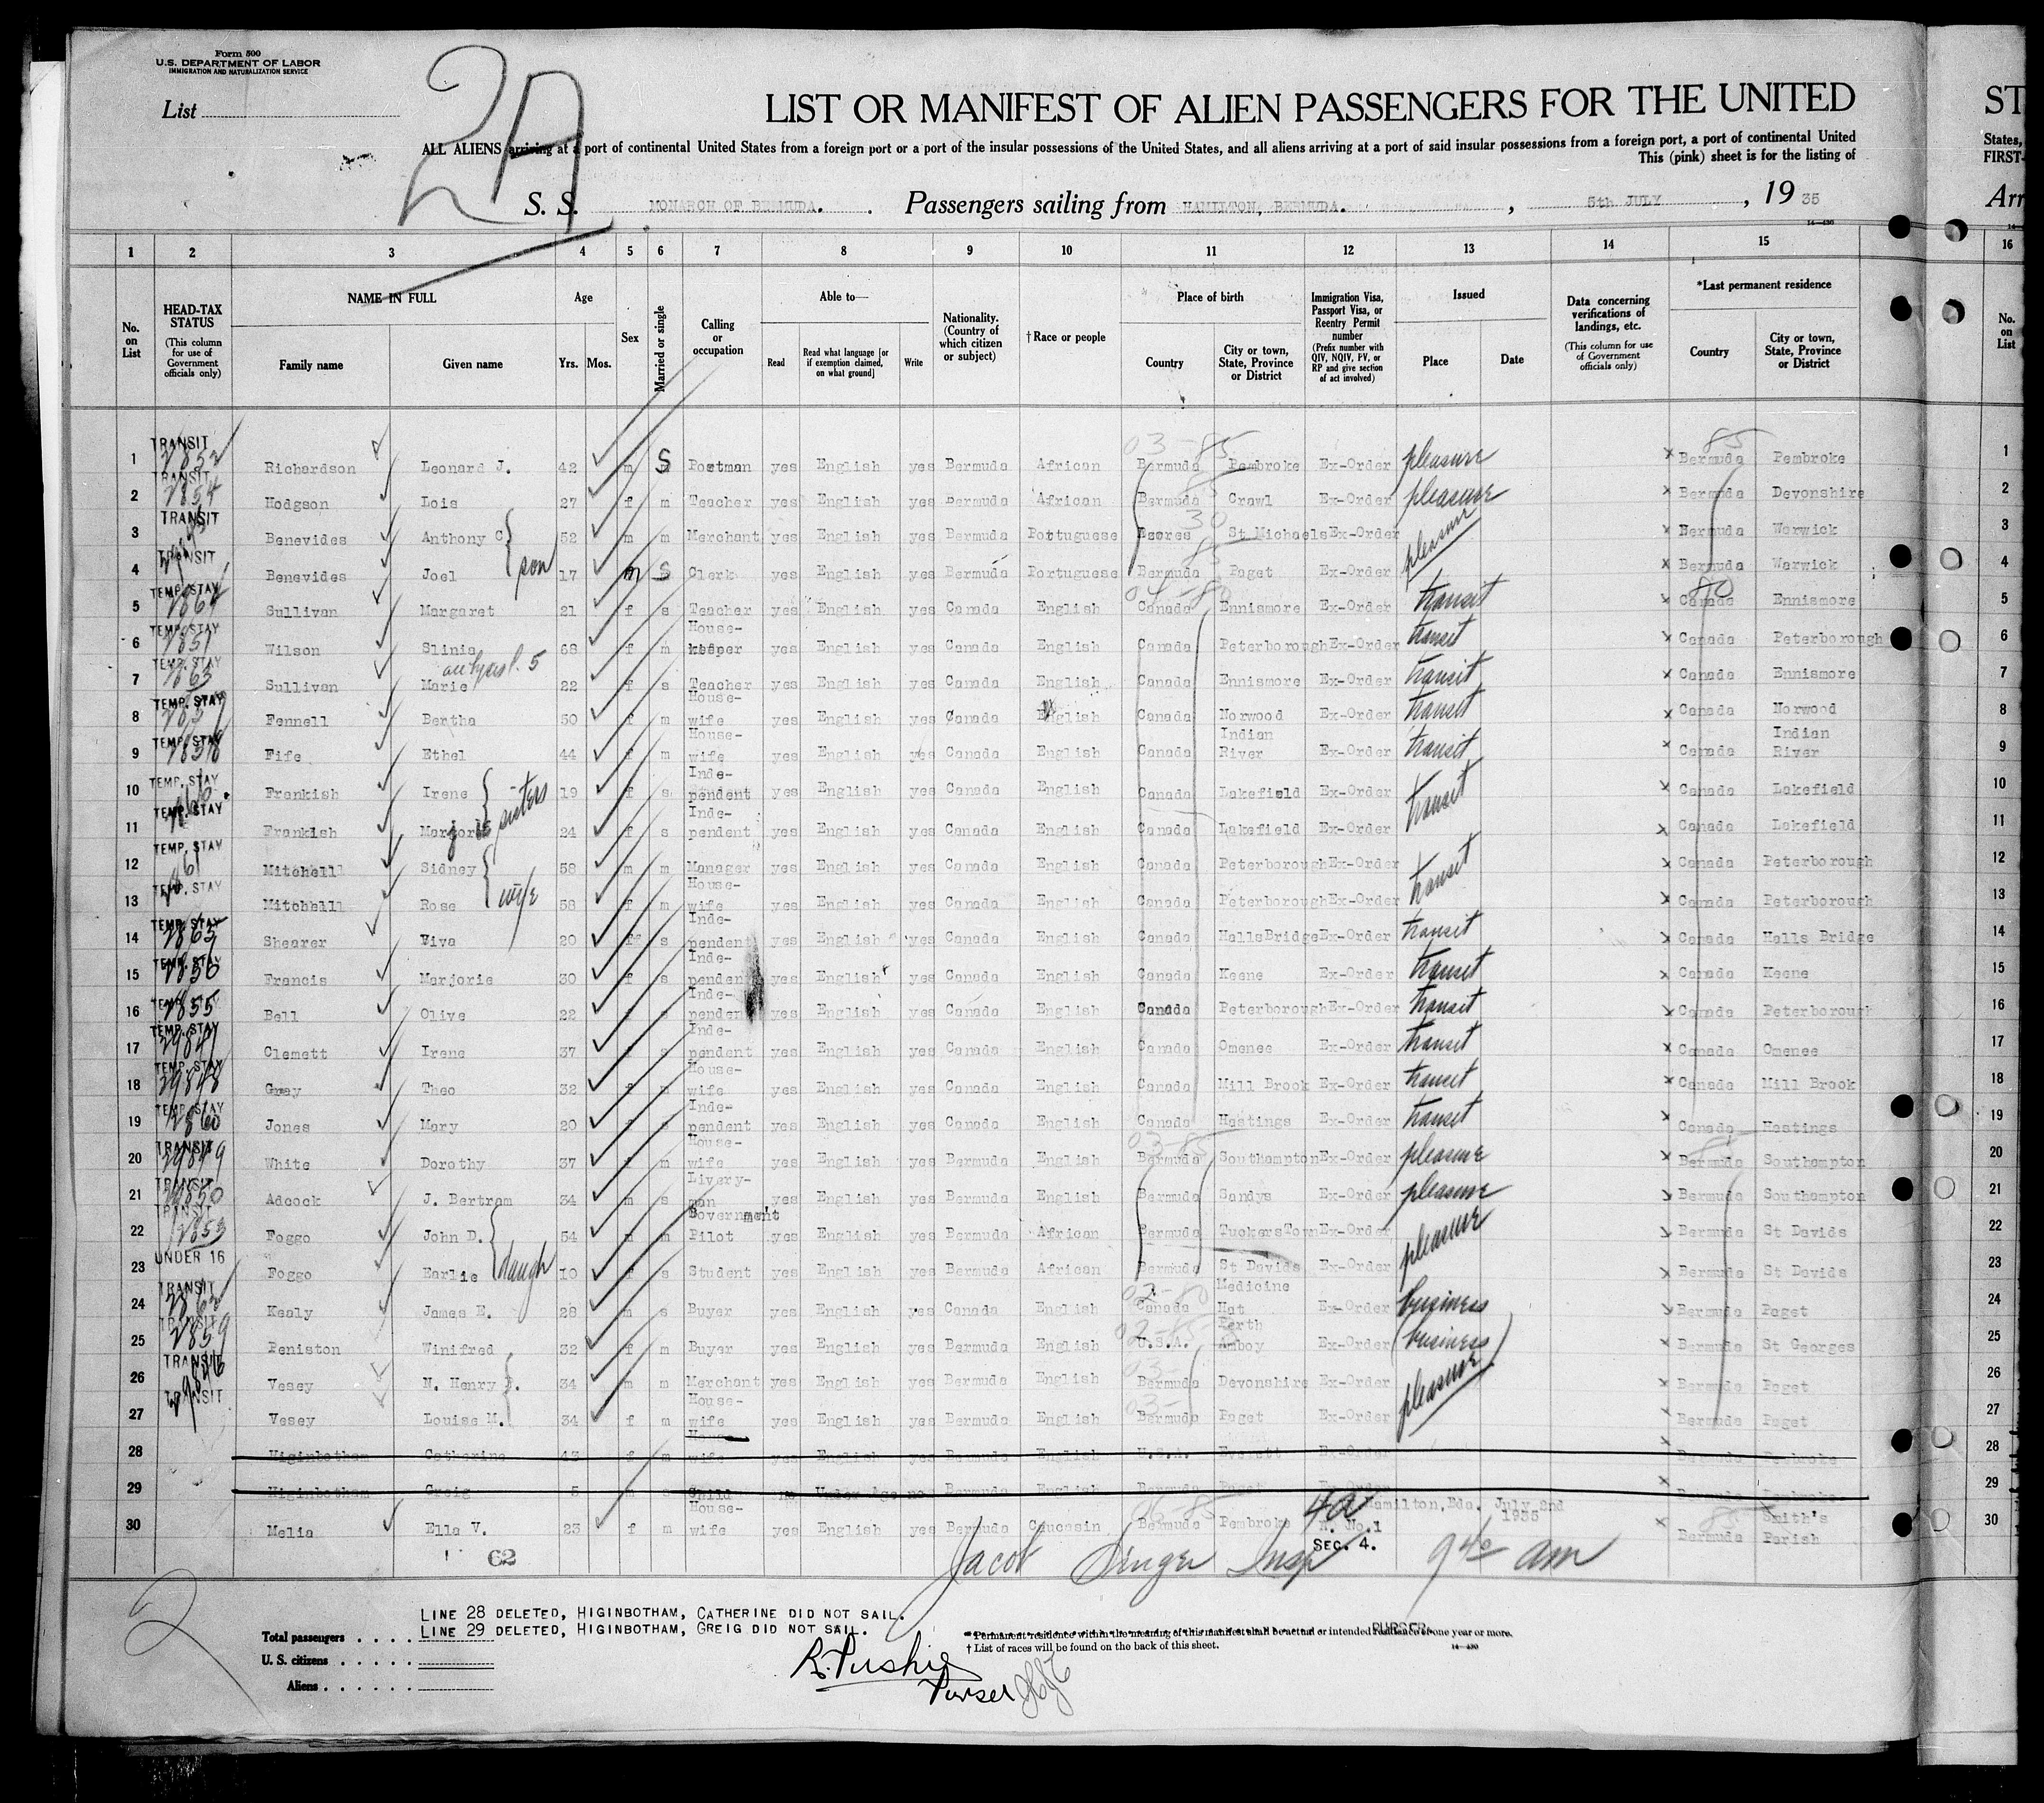 Form 500
U.S. DEPARTMENT OF LABOR
IMMIGRATION AND NATURALIZATION SERVICE
List
2A
LIST OR MANIFEST OF ALIEN PASSENGERS FOR THE UNITED
ST
ALL ALIENS arriving at a port of continental United States from a foreign port or a port of the insular possessions of the United States, and all aliens arriving at a port of said insular possessions from a foreign port, a port of continental United
States,
This (pink) sheet is for the listing of
FIRST-
S. S. MONARCH OF BERMUDA. Passengers sailing from HAMILTON, BERMUDA. , 5th JULY , 19 35
Arr
1 2 3 4 5 6 7 8 9 10 11 12 13 14 15 16
No. on List
HEAD-TAX STATUS (This column for use of Government officials only)
NAME IN FULL Family name Given name
Age Yrs. Mos.
Sex
Married or single
Calling or occupation
Able to— Read Read what language [or if exemption claimed, on what ground] Write
Nationality. (Country of which citizen or subject)
†Race or people
Place of birth Country City or town, State, Province or District
Immigration Visa, Passport Visa, or Reentry Permit number (Prefix number with QIV, NQIV, PV, or RP and give section of act involved)
Issued Place Date
Data concerning verifications of landings, etc. (This column for use of Government officials only)
*Last permanent residence Country City or town, State, Province or District
No. on List
1 TRANSIT Richardson Leonard J. 42 m S Postman yes English yes Bermuda African Bermuda Pembroke Ex-Order pleasure Bermuda Pembroke 1
2 TRANSIT 2854 Hodgson Lois 27 f m Teacher yes English yes Bermuda African Bermuda Crawl Ex-Order pleasure Bermuda Devonshire 2
3 TRANSIT Benevides Anthony C 52 m m Merchant yes English yes Bermuda Portuguese Azores St Michaels Ex-Order pleasure Bermuda Warwick 3
4 TRANSIT Benevides Joel son 17 m S Clerk yes English yes Bermuda Portuguese Bermuda Paget Ex-Order Bermuda Warwick 4
5 TEMP. STAY Sullivan Margaret 21 f s Teacher yes English yes Canada English Canada Ennismore Ex-Order transit Canada Ennismore 5
6 TEMP. STAY Wilson Slinia 68 f m House-keeper yes English yes Canada English Canada Peterborough Ex-Order transit Canada Peterborough 6
7 TEMP. STAY Sullivan Marie 22 f s Teacher yes English yes Canada English Canada Ennismore Ex-Order transit Canada Ennismore 7
8 TEMP. STAY Fennell Bertha 50 f m House-wife yes English yes Canada English Canada Norwood Ex-Order transit Canada Norwood 8
9 TEMP. STAY Fife Ethel 44 f m House-wife yes English yes Canada English Canada Indian River Ex-Order transit Canada Indian River 9
10 TEMP. STAY Frankish Irene sisters 19 f s Inde-pendent yes English yes Canada English Canada Lakefield Ex-Order transit Canada Lakefield 10
11 TEMP. STAY Frankish Marjorie 24 f s Inde-pendent yes English yes Canada English Canada Lakefield Ex-Order Canada Lakefield 11
12 TEMP. STAY Mitchell Sidney 58 m m Manager yes English yes Canada English Canada Peterborough Ex-Order transit Canada Peterborough 12
13 TEMP. STAY Mitchell Rose wife 58 f m House-wife yes English yes Canada English Canada Peterborough Ex-Order Canada Peterborough 13
14 TEMP. STAY 2865 Shearer Viva 20 f s Inde-pendent yes English yes Canada English Canada HallsBridge Ex-Order transit Canada Halls Bridge 14
15 TEMP. STAY Francis Marjorie 30 f s Inde-pendent yes English yes Canada English Canada Keene Ex-Order transit Canada Keene 15
16 TEMP. STAY 2855 Bell Olive 22 f s Inde-pendent yes English yes Canada English Canada Peterborough Ex-Order transit Canada Peterborough 16
17 TEMP. STAY Clemett Irene 37 f s Inde-pendent yes English yes Canada English Canada Omenee Ex-Order transit Canada Omenee 17
18 TEMP. STAY 29848 Gray Theo 32 f m House-wife yes English yes Canada English Canada Mill Brook Ex-Order transit Canada Mill Brook 18
19 TEMP. STAY 2860 Jones Mary 20 f s Inde-pendent yes English yes Canada English Canada Hastings Ex-Order transit Canada Hastings 19
20 TRANSIT 29849 White Dorothy 37 f m House-wife yes English yes Bermuda English Bermuda Southampton Ex-Order pleasure Bermuda Southampton 20
21 TRANSIT 29850 Adcock J. Bertram 34 m s Livery-man yes English yes Bermuda English Bermuda Sandys Ex-Order pleasure Bermuda Southampton 21
22 TRANSIT 2853 Foggo John D. 54 m m Government Pilot yes English yes Bermuda African Bermuda TuckersTown Ex-Order pleasure Bermuda St Davids 22
23 UNDER 16 Foggo Earlie daugh 10 f s Student yes English yes Bermuda African Bermuda St Davids Ex-Order Bermuda St Davids 23
24 TRANSIT Kealy James E. 28 m s Buyer yes English yes Canada English Canada Medicine Hat Ex-Order business Bermuda Paget 24
25 TRANSIT 2859 Peniston Winifred 32 f m Buyer yes English yes Bermuda English U.S.A. Perth Amboy Ex-Order (business) Bermuda St Georges 25
26 TRANSIT 29846 Vesey N. Henry P. 34 m m Merchant yes English yes Bermuda English Bermuda Devonshire Ex-Order pleasure Bermuda Paget 26
27 TRANSIT Vesey Louise M. 34 f m House-wife yes English yes Bermuda English Bermuda Paget Ex-Order Bermuda Paget 27
28 Higinbotham Catherine 43 f m House-wife yes English yes Bermuda English U.S.A. Everett Ex-Order Bermuda Pembroke 28
29 Higinbotham Greig 5 m s Child no Under Age no Bermuda English Bermuda Paget Ex-Order Bermuda Pembroke 29
30 Melia Ella V. 23 f m House-wife yes English yes Bermuda Caucasin Bermuda Pembroke 4a No.1 SEC. 4. Hamilton, Bda. July 2nd 1935 Bermuda Smith's Parish 30
62
Jacob Singer Insp 9 40 am
LINE 28 DELETED, HIGINBOTHAM, CATHERINE DID NOT SAIL.
LINE 29 DELETED, HIGINBOTHAM, GREIG DID NOT SAIL.
Total passengers
U. S. citizens
Aliens
* Permanent residence within the meaning of this manifest shall be actual or intended residence of one year or more.
PURSER.
† List of races will be found on the back of this sheet.
14—430
R. Pushie
Purser
2